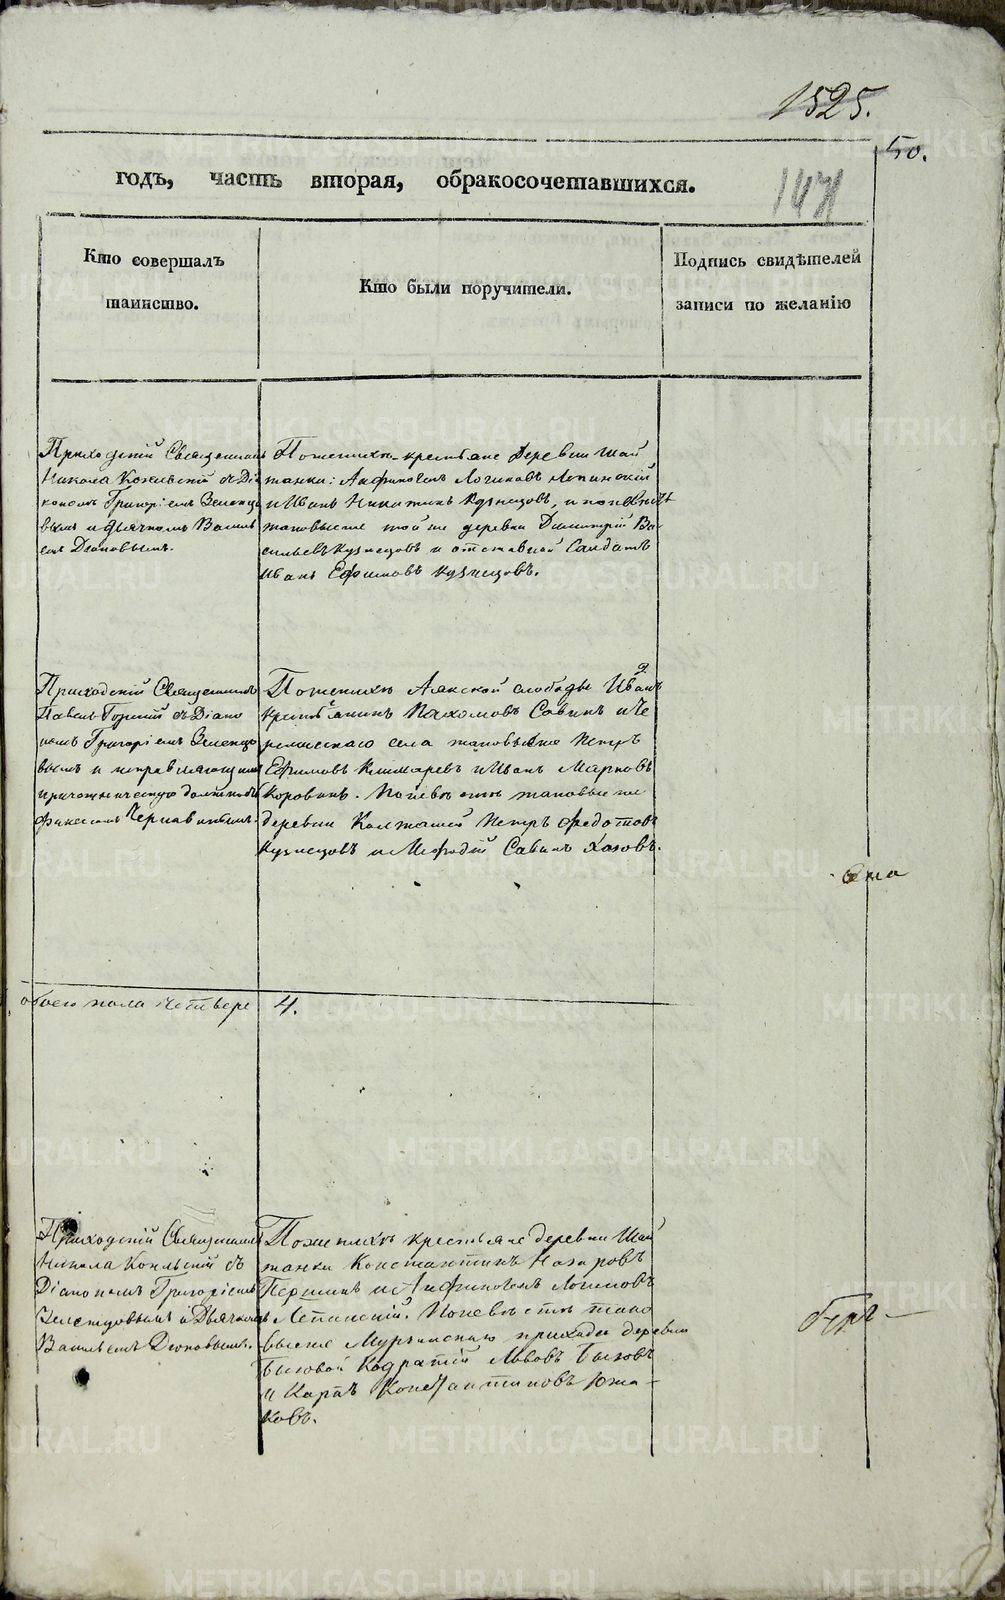 1525.
50.
годъ, часть вторая, обракосочетавшихся.
147
Кто совершалъ
таинство.
Кто были поручители.
Подпись свидѣтелей
записи по желанію
Приходскій Священникъ
Никола Кокельскій съ Діа
кономъ Григоріемъ Зеленцо
вымъ и Дьячкомъ Василь
емъ Дюковымъ.
Пожениху крестьяне Деревни Шай
танки: Анфиногенъ Логиновъ Лепинскій
и Иванъ Никитинъ Кузнецовъ, и поневѣст
таковыеже тойже деревни Димитрій Ва
сильевъ Кузнецовъ и отставной Салдатъ
Иванъ Ефимовъ Кузнецовъ.
Приходскій Священникъ
Павелъ Горный съ Діако
номъ Григоріемъ Зеленцо
вымъ и исправляющимъ
причетническую должность
Чернавинымъ.
Пожениху Аятской слободы Иванъ
крестьянинъ Пахомовъ Савинъ и Че
ремискаго села таковыеже Петръ
Ефимовъ Клишаревъ и Иванъ Марковъ
Коровинъ. Поневѣстѣ таковые же
деревни Колташей Петръ Федотовъ
Кузнецовъ и Мефодій Савинъ Хазовъ.
обоего пола четверо 4.
Приходскій Священникъ
Никола Кокельскій съ
Діакономъ Григоріемъ
Зеленцовымъ и Дьячкомъ
Васильемъ Дюковымъ.
Пожениху крестьяне деревни Шай
танки Константинъ Назаровъ
Першинъ и Анфиногенъ Логиновъ
Лепинскій. Поневѣстѣ тако
выеже Мурзинскаго прихода деревни
Бызовой Кодратій Львовъ Бызовъ
и Карпъ Константиновъ Южа-
ковъ.
METRIKI.GASO-URAL.RU